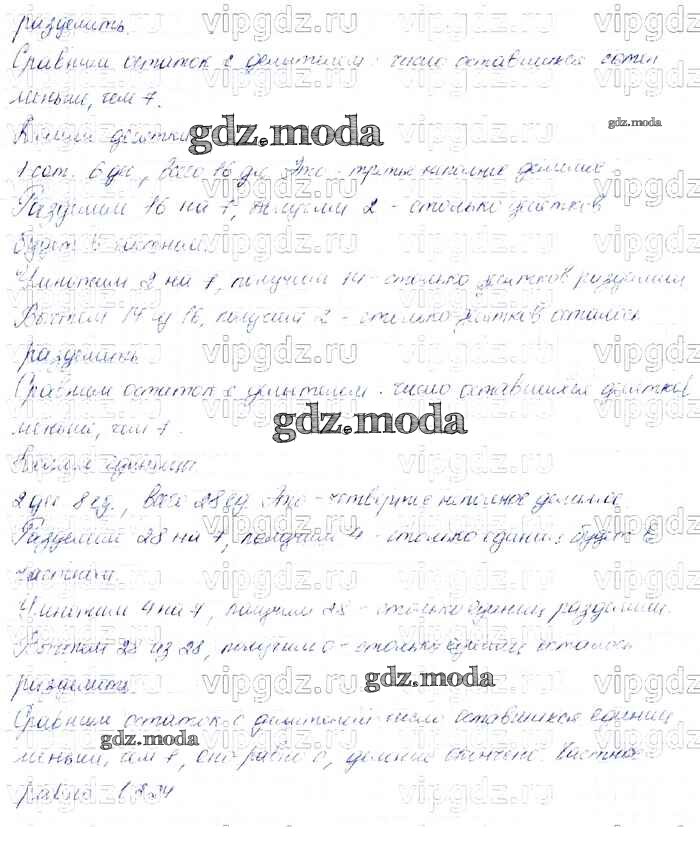 разделить.
Сравним остаток с делителем: число оставшихся сотен
меньше, чем 7.
gdz.moda
gdz.moda
1 сот. 6 дес., всего 16 дес. Это - третье неполное делимое
Разделим 16 на 7, получим 2 - столько десятков
будет в частном.
Умножим 2 на 7, получим 14 - столько десятков разделили
Вычтем 14 из 16, получим 2 - столько десятков осталось
разделить
Сравним остаток с делителем: число оставшихся десятков
меньше, чем 7.
gdz.moda
единицы
2 дес 8 ед., всего 28 ед. Это - четвертое неполное делимое
Разделим 28 на 7, получим 4 - столько единиц будет в
частном.
Умножим 4 на 7, получим 28 - столько единиц разделили.
Вычтем 28 из 28, получим 0 - столько единиц осталось
разделить.
gdz.moda
Сравним остаток с делителем: число оставшихся единиц
gdz.moda
меньше, чем 7, оно равно 0, деление окончено. Частное
равно
vipgdz.ru